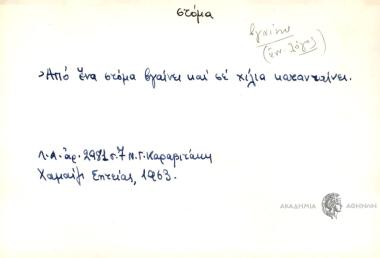 στόμα
βγαίνω
(ἐν. λόγος)
Ἀπό ἕνα στόμα βγαίνει καί σέ χίλια κατανταίνει.
Λ.Α. ἀρ. 2981 σ. 7 Μ. Γ. Καραβιτάκη
Χαμαίζι Σητείας, 1963.
ΑΚΑΔΗΜΙΑ ΑΘΗΝΩΝ